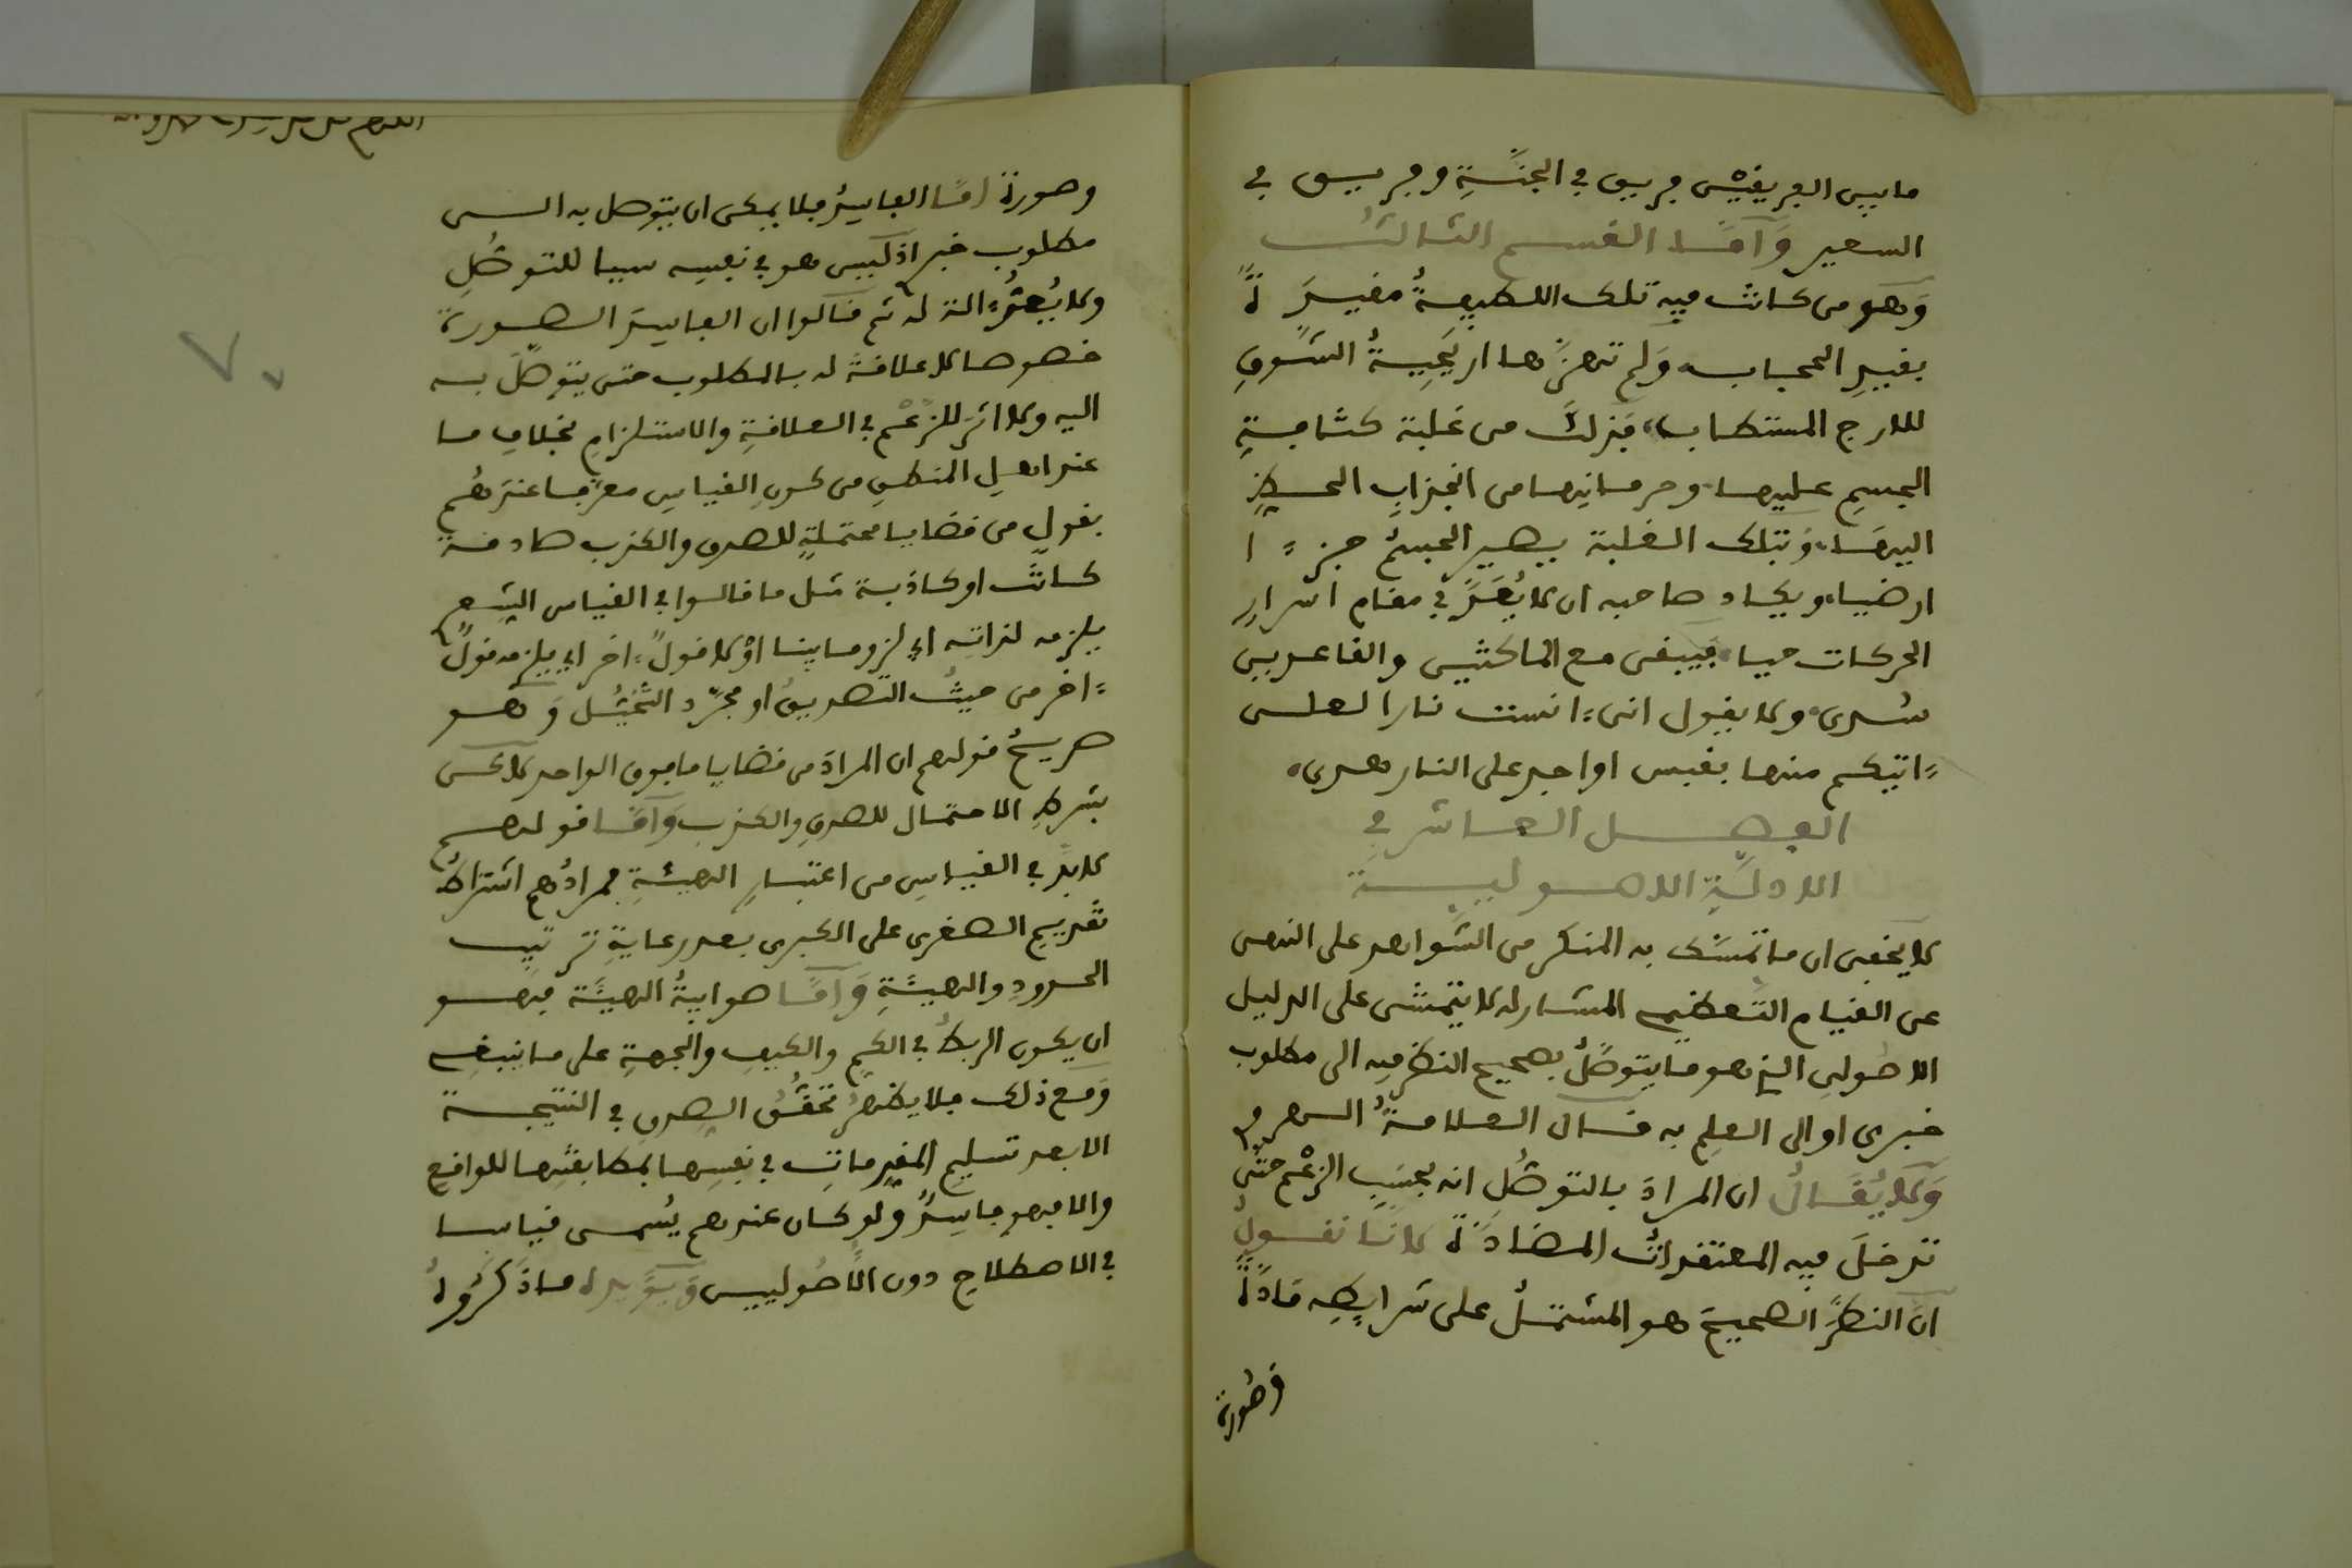 ما بين الفريقين فريق في الجنة وفريق في
السعير وأما القسم الثالث
وهو من كانت فيه تلك اللطيفة مقيدة
بقيد الحجاب ولم تهزها اريحية الشوق
للارج المستطاب، فذلك من غلبة كثافة
الجسم عليها، وحرمانها من انجذاب الحيز
اليها، وبتلك الغلبة يصير الجسم جزءا
ارضيا، ويكاد صاحبه ان لا يعد في مقام اسرار
الحركات حيا، فيبقى مع الماكثين والقاعدين
سدى، ولا يقول اني ءانست نارا لعلي
ءاتيكم منها بقبس او اجد على النار هدى،
الفصل العاشر في
الادلة الاصولية
لا يخفى ان ما تمسك به المنكر من الشواهد على النهي
عن القيام التعظيمي المشار له لا يتمشى على الدليل
الاصولي الذي هو ما يتوصل بصحيح النظر فيه الى مطلوب
خبري او الى العلم به قال العلامة السعد
ولا يقال ان المراد بالتوصل انه بحسب الزعم حتى
تدخل فيه المعتقدات المضادة لانا نقول
ان النظر الصحيح هو المشتمل على شرايطه مادة
وصورة
وصورة اما الفاسد فلا يمكن ان يتوصل به الى
مطلوب خبر اذ ليس هو في نفسه سببا للتوصل
ولا يعد ءالة له ثم قالوا ان الفاسد الصورة
خصوصا لا علاقة له بالمطلوب حتى يتوصل به
اليه ولا اثر للزعم في العلاقة والاستلزام بخلاف ما
عند اهل المنطق من كون القياس معرفا عندهم
بقول من قضايا محتملة للصدق والكذب صادقة
كانت او كاذبة مثل ما قالوا في القياس الشعري
يلزمه لذاته اي لزوما بينا او لا قول ءاخر اي يلزمه قول
ءاخر من حيث التصديق او مجرد التخيل وهو
صريح قولهم ان المراد من قضايا ما فوق الواحد لاكن
بشرط الاحتمال للصدق والكذب وأما قولهم
لا بد في القياس من اعتبار الهيئة فمرادهم اشتراط
تقديم الصغرى على الكبرى بعد رعاية ترتيب
الحدود والهيئة وأما صوابية الهيئة فهو
ان يكون الربط في الكم والكيف والجهة على ما ينبغي
ومع ذلك فلا يظهر تحقق الصدق في النتيجة
الا بعد تسليم المقدمات في نفسها بمطابقتها للواقع
والا فهو فاسد ولو كان عندهم يسمى قياسا
في الاصطلاح دون الأصوليين ويؤيد له ما ذكروه